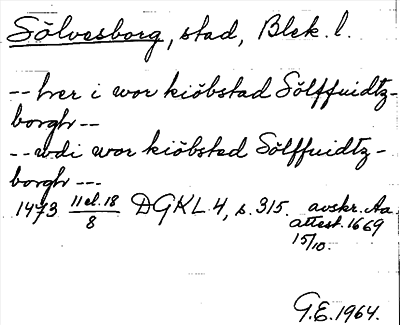 Sölvesborg, stad, Blek. l.
-- her i wor kiöbstad Sölffuidtz-
borgh --
-- wdi wor kiöbsted Sölffuidtz-
borgh ---
1473 11 el. 18/8 DGKL. 4, s. 315. avskr. Aa.
attest. 1669
15/10.
G.E. 1964.